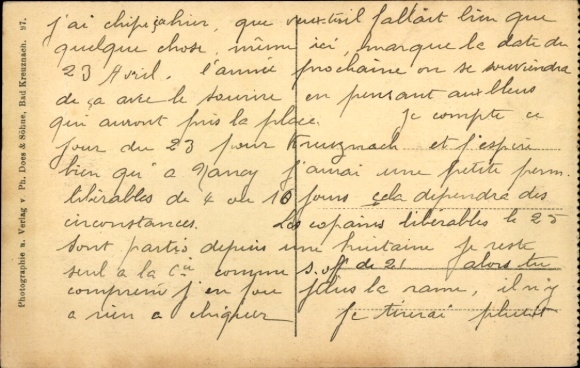 j'ai chipé çahier, que veux-tu il fallait bien que
quelque chose, même ici, marque la date du
23 Avril. l'année prochaine on se souviendra
de ça avec le sourire en pensant aux bleus
qui auront pris la place. Je compte ce
jour du 23 pour Kreuznach et j'espère
bien qu'à Nancy j'aurai une petite perm.
libérables de 4 ou 10 jours çela dépendra des
circonstances. Les copains libérables le 25
sont partis depuis une huitaine je reste
seul a la Cie comme s.off de 21 alors tu
comprend j'en fou plus la rame, il n'y
a rien a chiquer Je tirerai plutôt
Photographie u. Verlag v. Ph. Does & Söhne, Bad Kreuznach. 97.